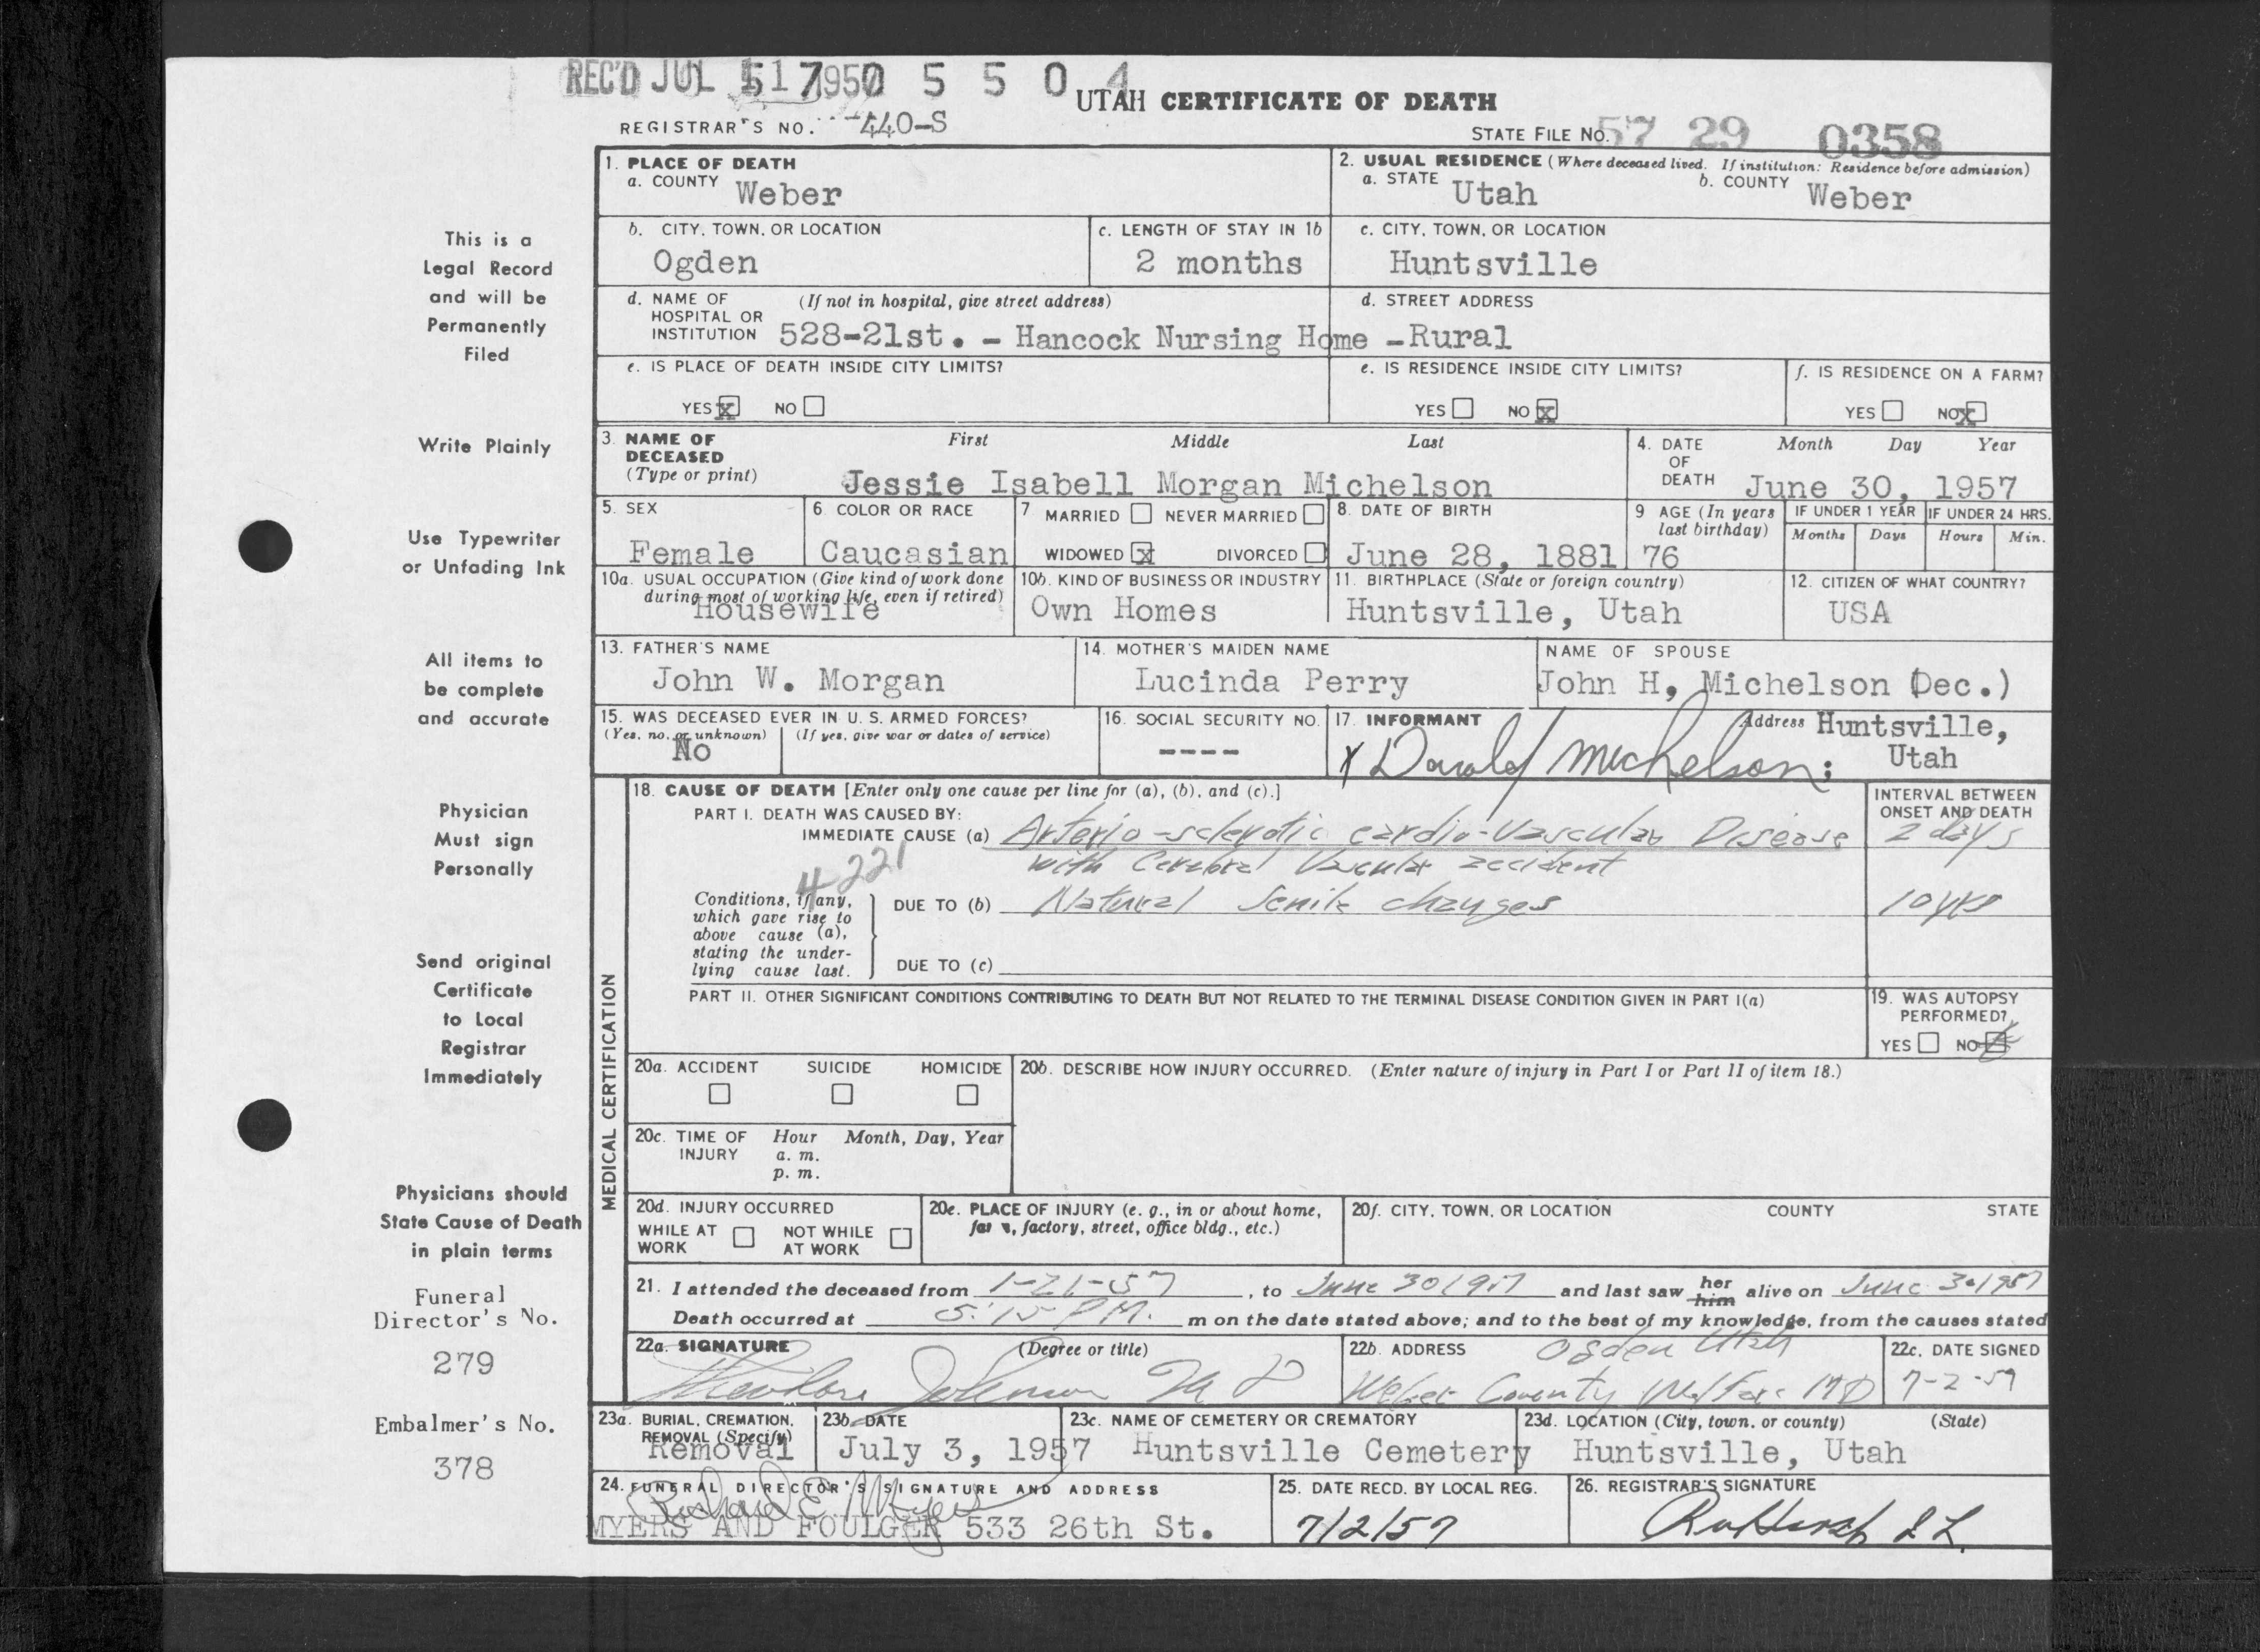 REC'D JUL 1957 0 5 5 0 4
UTAH CERTIFICATE OF DEATH
REGISTRAR'S NO. 440-S
STATE FILE NO. 57 29 0358
1. PLACE OF DEATH
a. COUNTY Weber
2. USUAL RESIDENCE (Where deceased lived. If institution: Residence before admission)
a. STATE Utah b. COUNTY Weber
b. CITY, TOWN, OR LOCATION
Ogden
c. LENGTH OF STAY IN 1b
2 months
c. CITY, TOWN, OR LOCATION
Huntsville
d. NAME OF HOSPITAL OR INSTITUTION (If not in hospital, give street address)
528-21st. - Hancock Nursing Home
d. STREET ADDRESS
-Rural
e. IS PLACE OF DEATH INSIDE CITY LIMITS?
YES X NO
e. IS RESIDENCE INSIDE CITY LIMITS?
YES NO X
f. IS RESIDENCE ON A FARM?
YES NO X
3. NAME OF DECEASED (Type or print)
First Middle Last
Jessie Isabell Morgan Michelson
4. DATE OF DEATH Month Day Year
June 30, 1957
5. SEX
Female
6. COLOR OR RACE
Caucasian
7. MARRIED NEVER MARRIED
WIDOWED X DIVORCED
8. DATE OF BIRTH
June 28, 1881
9. AGE (In years last birthday)
76
IF UNDER 1 YEAR
Months Days
IF UNDER 24 HRS.
Hours Min.
10a. USUAL OCCUPATION (Give kind of work done during most of working life, even if retired)
Housewife
10b. KIND OF BUSINESS OR INDUSTRY
Own Homes
11. BIRTHPLACE (State or foreign country)
Huntsville, Utah
12. CITIZEN OF WHAT COUNTRY?
USA
13. FATHER'S NAME
John W. Morgan
14. MOTHER'S MAIDEN NAME
Lucinda Perry
NAME OF SPOUSE
John H, Michelson (Dec.)
15. WAS DECEASED EVER IN U. S. ARMED FORCES?
(Yes, no, or unknown) (If yes, give war or dates of service)
No
16. SOCIAL SECURITY NO.
----
17. INFORMANT
x Donald Michelson;
Address Huntsville,
Utah
MEDICAL CERTIFICATION
18. CAUSE OF DEATH [Enter only one cause per line for (a), (b), and (c).]
INTERVAL BETWEEN ONSET AND DEATH
PART I. DEATH WAS CAUSED BY:
IMMEDIATE CAUSE (a) Arterio-sclerotic cardio-vascular Disease 2 days
with Cerebral Vascular accident
4221
Conditions, if any, which gave rise to above cause (a), stating the underlying cause last.
DUE TO (b) Natural Senile changes 10 yrs
DUE TO (c)
PART II. OTHER SIGNIFICANT CONDITIONS CONTRIBUTING TO DEATH BUT NOT RELATED TO THE TERMINAL DISEASE CONDITION GIVEN IN PART I(a)
19. WAS AUTOPSY PERFORMED?
YES NO
20a. ACCIDENT SUICIDE HOMICIDE
20b. DESCRIBE HOW INJURY OCCURRED. (Enter nature of injury in Part I or Part II of item 18.)
20c. TIME OF INJURY Hour Month, Day, Year
a. m.
p. m.
20d. INJURY OCCURRED
WHILE AT WORK NOT WHILE AT WORK
20e. PLACE OF INJURY (e. g., in or about home, farm, factory, street, office bldg., etc.)
20f. CITY, TOWN, OR LOCATION COUNTY STATE
21. I attended the deceased from 1-21-57, to June 30 1957 and last saw her him alive on June 30 1957
Death occurred at 5:15 P.M. m on the date stated above; and to the best of my knowledge, from the causes stated
22a. SIGNATURE (Degree or title)
Theodore Johnson M D
22b. ADDRESS Ogden Utah
Weber County Welfare MD
22c. DATE SIGNED
7-2-57
23a. BURIAL, CREMATION, REMOVAL (Specify)
Removal
23b. DATE
July 3, 1957
23c. NAME OF CEMETERY OR CREMATORY
Huntsville Cemetery
23d. LOCATION (City, town, or county) (State)
Huntsville, Utah
24. FUNERAL DIRECTOR'S SIGNATURE AND ADDRESS
Richard E. Myers
MYERS AND FOULGER 533 26th St.
25. DATE RECD. BY LOCAL REG.
7/2/57
26. REGISTRAR'S SIGNATURE
This is a
Legal Record
and will be
Permanently
Filed
Write Plainly
Use Typewriter
or Unfading Ink
All items to
be complete
and accurate
Physician
Must sign
Personally
Send original
Certificate
to Local
Registrar
Immediately
Physicians should
State Cause of Death
in plain terms
Funeral
Director's No.
279
Embalmer's No.
378